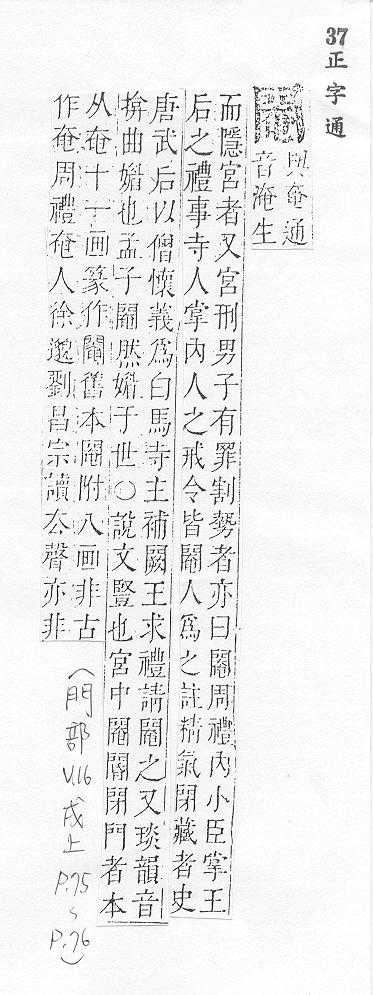 37正字通
閹
與奄通
音淹生
而隱宮者又宮刑男子有罪割勢者亦曰閹周禮內小臣掌王
后之禮事寺人掌內人之戒令皆閹人爲之註精氣閉藏者史
唐武后以僧懷義爲白馬寺主補闕王求禮請閹之又琰韻音
揜曲媚也孟子閹然媚于世○說文豎也宮中閹閽閉門者本
从奄十一画篆作閹舊本閹附八画非古
作奄周禮奄人徐邈劉昌宗讀厺聲亦非
(門部 V.16 戌上 P.75~P.76)